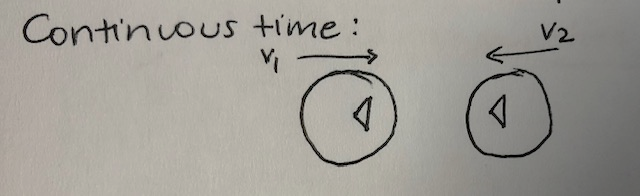 Continuous time:
V1
V2